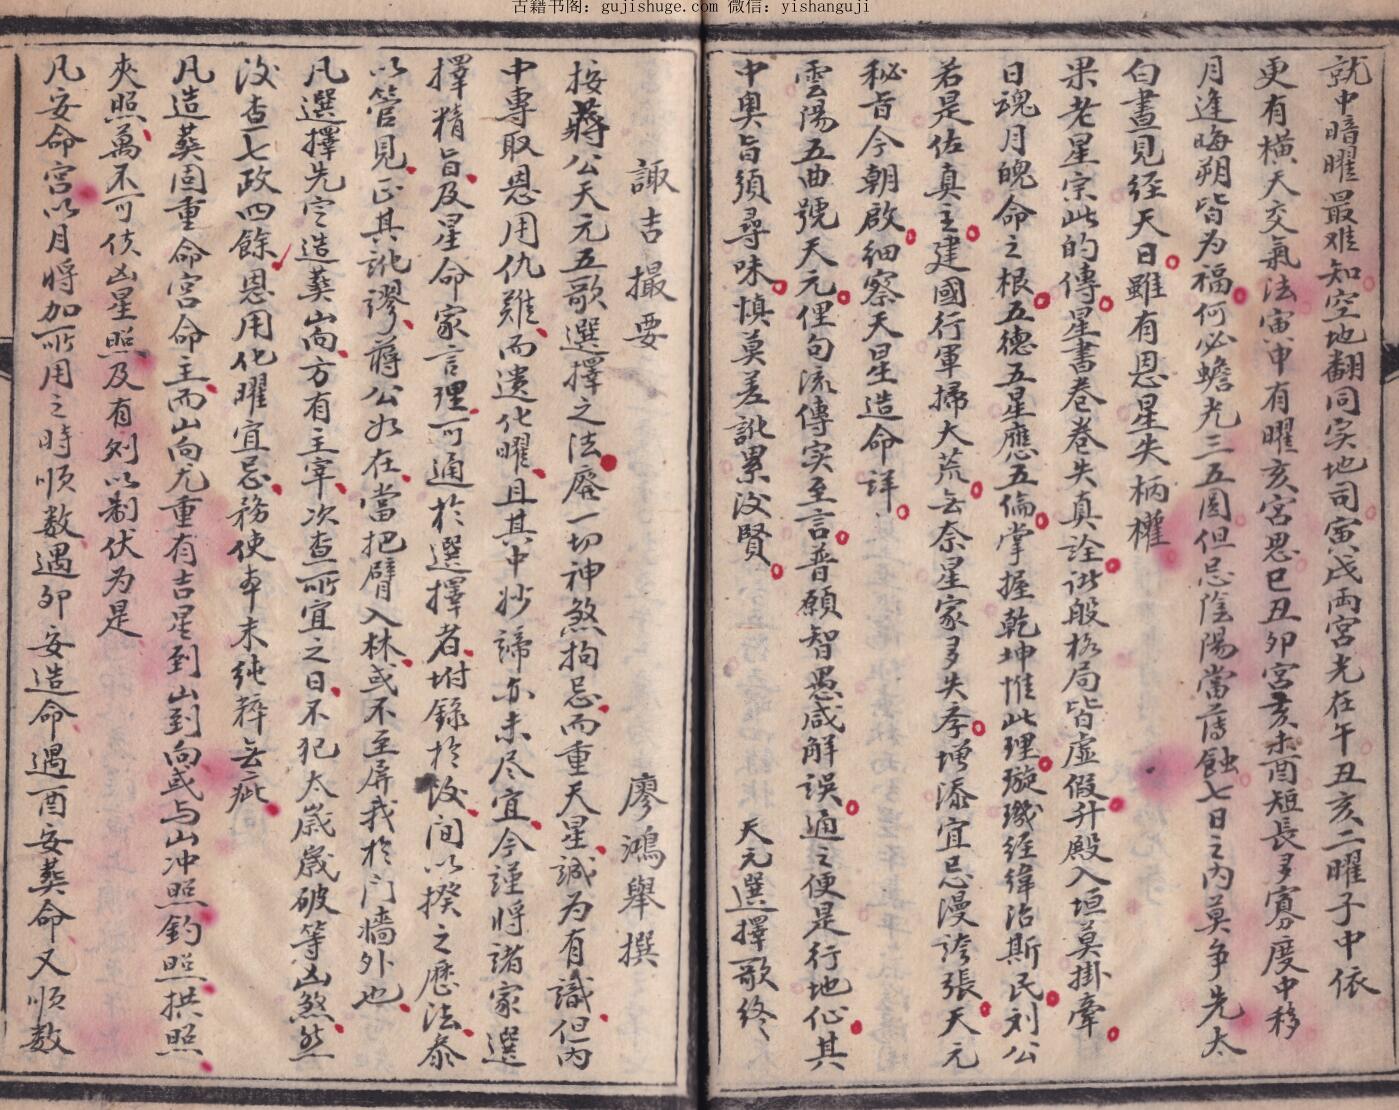 古籍书阁：gujishuge.com 微信：yishanguji
就中暗曜最难知空地翻同实地司寅戌両宮光在午丑亥二曜子中依
更有横天交氣法寅申有曜亥宮思巳丑卯宮亥未酉短長多寡度中移
月逢晦朔皆为福何必蟾光三五圆但忌陰陽當薄蝕七日之内莫争先太
白晝見经天日雖有恩星失柄權
果老星宗此的傳星書巻巻失真詮諩般格局皆虚假升殿入垣莫掛牽
日魂月魄命之根五德五星應五倫掌握乾坤惟此理璇璣经緯治斯民刘公
若是佐真主建國行軍掃大荒无奈星家多失季增添宜忌漫誇張天元
秘旨今朝啟细察天星造命詳
雲陽五曲號天元俚句流傳实至言普願智愚咸解误通之便是行地仙其
中奥旨須尋味慎莫差訛累没賢　天元選擇歌终
諏吉撮要　廖鴻舉撰
按蔣公天元五歌選擇之法廢一切神煞拘忌而重天星诚为有識但内
中専取恩用仇难而遗化曜且其中妙諦亦未尽宜今謹将諸家選
擇精旨及星命家言理可通於選擇者坿録於後间以揆之歷法叅
以管見正其訛謬蔣公如在當把臂入林或不至屏我於门墙外也
凡選擇先定造葵山向方有主宰次查所宜之日不犯太歳歳破等凶煞然
没查七政四餘恩用化曜宜忌務使本末纯粹无疵
凡造葵固重命宮命主而山向尤重有吉星到山到向或与山冲照釣照拱照
夾照萬不可使凶星照及有则以制伏为是
凡安命宮以月将加所用之時順数遇卯安造命遇酉安葵命又順数